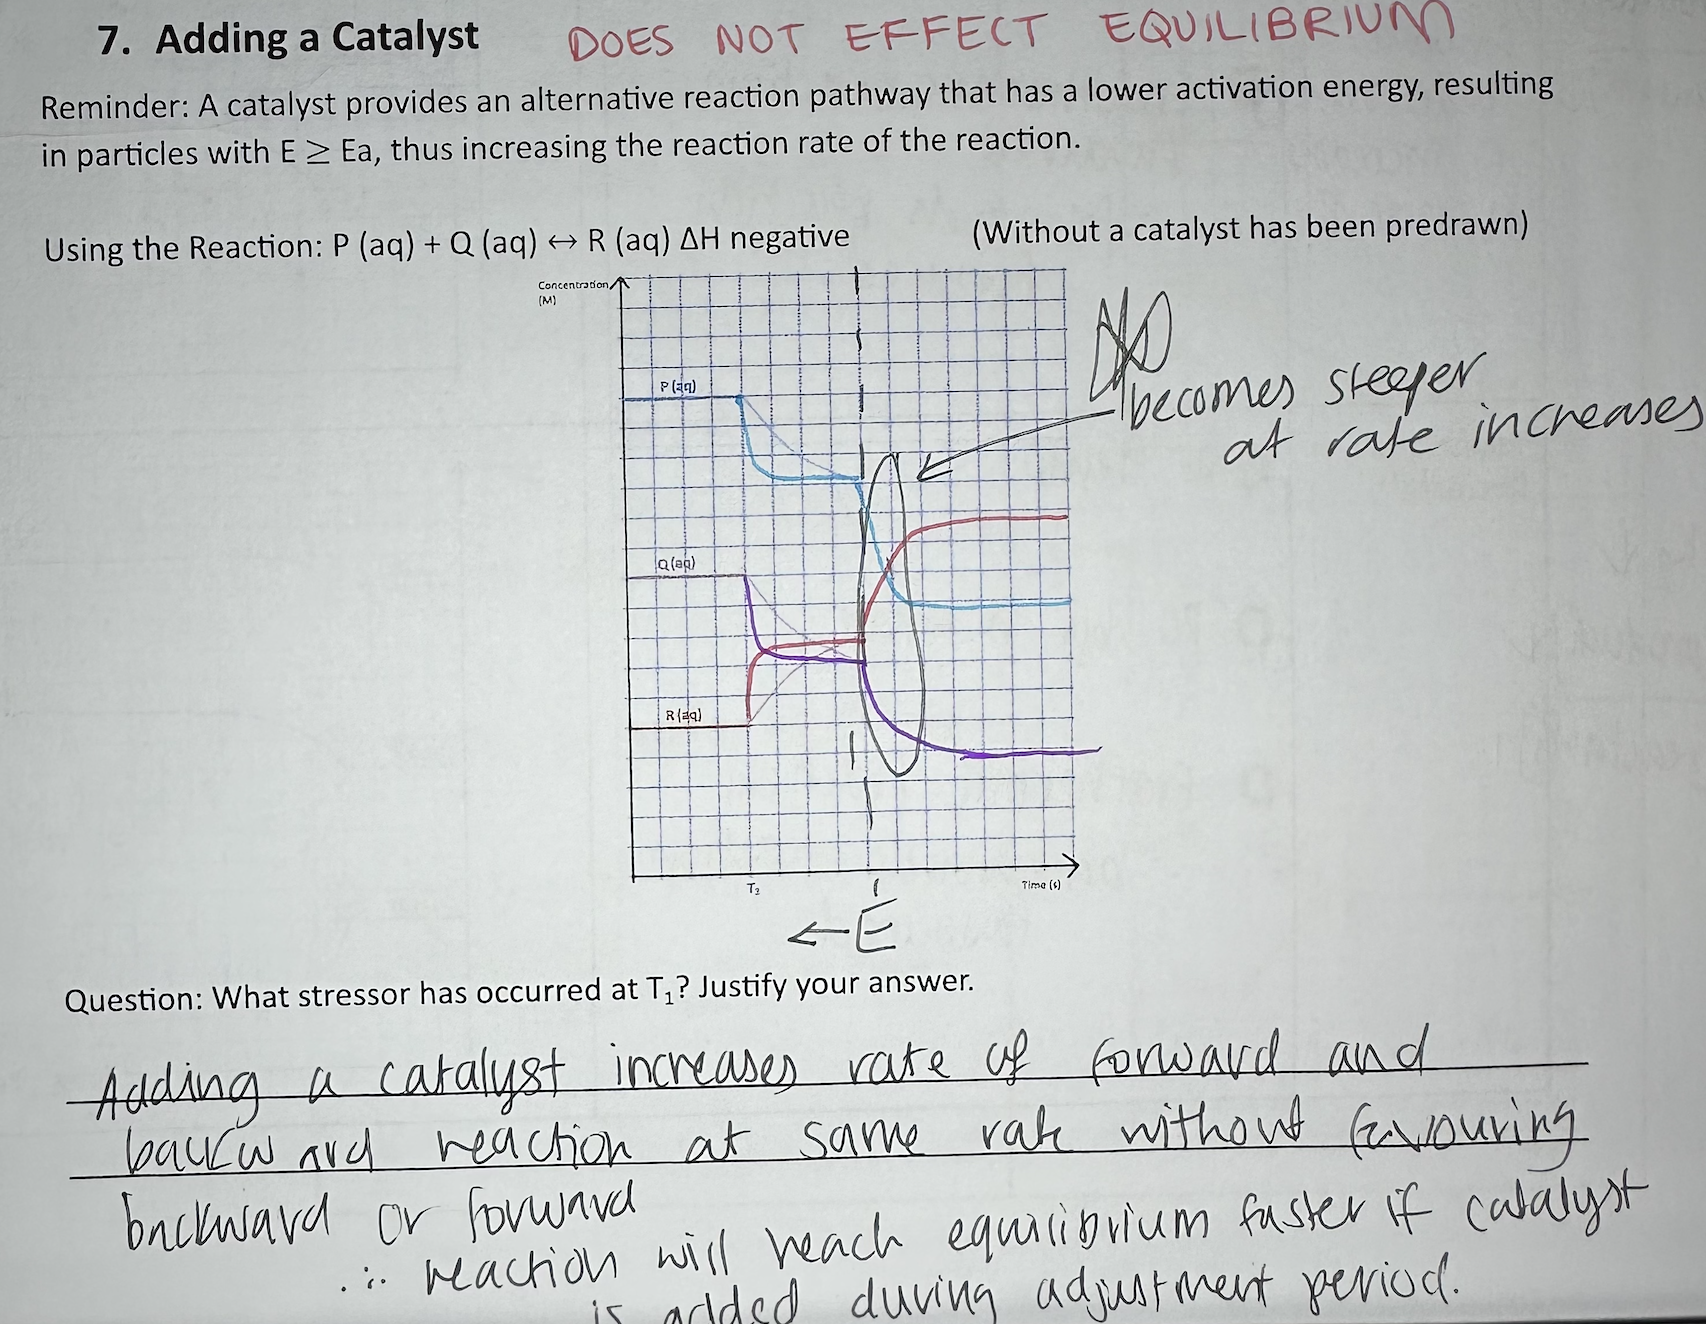 7. Adding a Catalyst DOES NOT EFFECT EQUILIBRIUM
Reminder: A catalyst provides an alternative reaction pathway that has a lower activation energy, resulting
in particles with E ≥ Ea, thus increasing the reaction rate of the reaction.
Using the Reaction: P (aq) + Q (aq) ↔ R (aq) ΔH negative (Without a catalyst has been predrawn)
Concentration
(M)
P (aq)
becomes steeper
at rate increases
Q (aq)
R (aq)
T₂ Time (s)
← E
Question: What stressor has occurred at T₁? Justify your answer.
Adding a catalyst increases rate of forward and
backward reaction at same rate without favouring
backward or forward
∴ reaction will reach equilibrium faster if catalyst
is added during adjustment period.